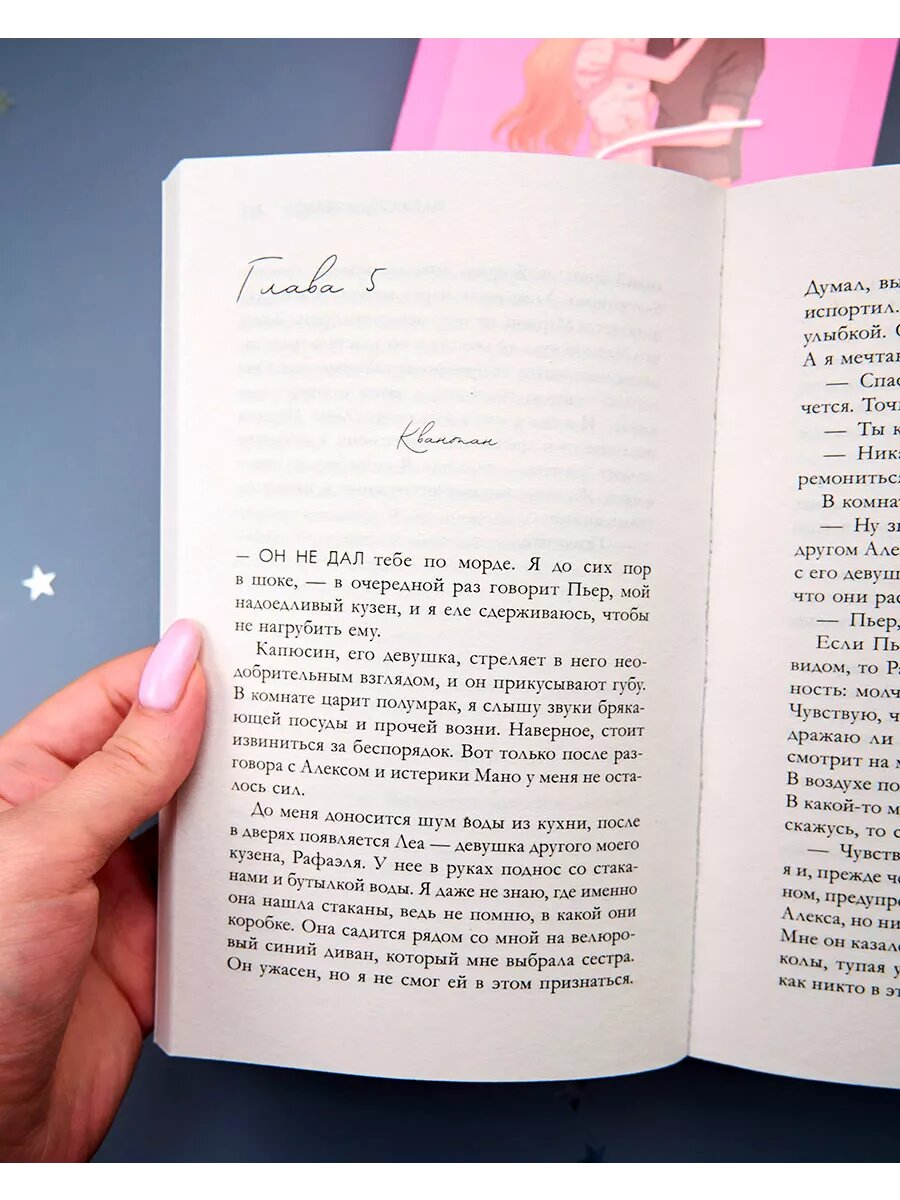 Глава 5
Квантан
— ОН НЕ ДАЛ тебе по морде. Я до сих пор
в шоке, — в очередной раз говорит Пьер, мой
надоедливый кузен, и я еле сдерживаюсь, чтобы
не нагрубить ему.
Капюсин, его девушка, стреляет в него нео-
добрительным взглядом, и он прикусывают губу.
В комнате царит полумрак, я слышу звуки бряка-
ющей посуды и прочей возни. Наверное, стоит
извиниться за беспорядок. Вот только после раз-
говора с Алексом и истерики Мано у меня не оста-
лось сил.
До меня доносится шум воды из кухни, после
в дверях появляется Леа — девушка другого моего
кузена, Рафаэля. У нее в руках поднос со стака-
нами и бутылкой воды. Я даже не знаю, где именно
она нашла стаканы, ведь не помню, в какой они
коробке. Она садится рядом со мной на велюро-
вый синий диван, который мне выбрала сестра.
Он ужасен, но я не смог ей в этом признаться.
Думал, вы
испортил.
улыбкой. С
А я мечта
— Спас
чется. Точ
— Ты к
— Ника
ремониться
В комна
— Ну з
другом Але
с его девуш
что они рас
— Пьер,
Если Пь
видом, то Р
ность: молч
Чувствую, ч
дражаю ли
смотрит на м
В воздухе по
В какой-то м
скажусь, то с
— Чувств
я и, прежде че
ном, предупре
Алекса, но ни
Мне он казал
колы, тупая у
как никто в э